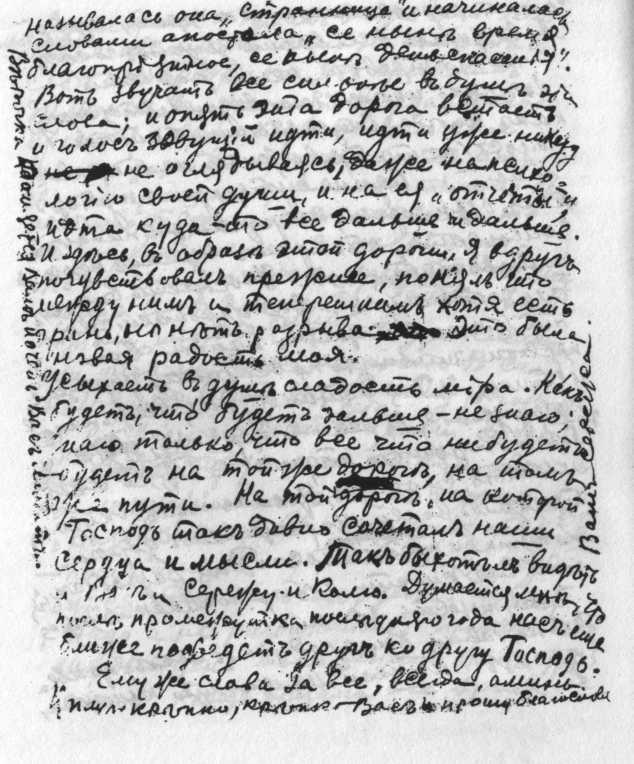 называлась она „Странница" и начиналась
словами апостола „се нынѣ время
благопріятное, се нынѣ день спасенія".
Вотъ звучатъ все сильнѣе въ душѣ эти
слова; и опять эта дорога встаетъ
и голосъ зовущій идти, идти уже никуда
не не оглядываясь, даже на психо-
логію своей души, и на ея „отчеты", и
идти куда-то все дальше и дальше.
И здѣсь, въ образѣ этой дороги, я вдругъ
почувствовалъ прежнее, понялъ что
между нимъ и теперешнимъ хотя есть
грань, но нѣтъ разрыва. Это была
новая радость моя.
Усыхаетъ въ душѣ сладость міра. Какъ
будетъ, что будетъ дальше – не знаю;
знаю только, что все что ни будетъ
– будетъ на той же дорогѣ, на томъ
же пути. На той дорогѣ, на которой
Господь такъ давно сочеталъ наши
сердца и мысли. Такъ бы хотѣлъ видѣть
и Сережу и Колю. Думается мнѣ, что
послѣ промежутка послѣдняго года насъ еще
ближе подведетъ другъ ко другу Господь.
Ему же слава за все, всегда, аминь.
крѣпко, крѣпко Васъ и прошу благослове